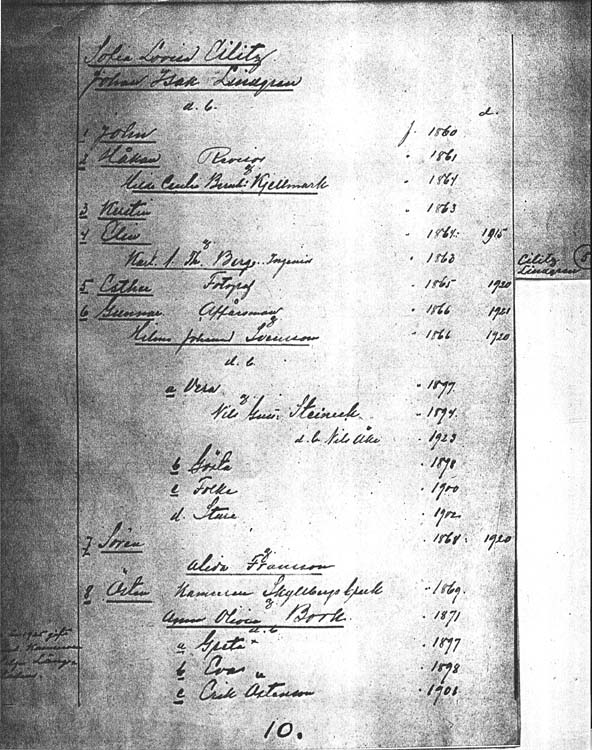 Sofia Lovisa Cilitz
Johan Isak Lindgren
d. b. d.
1 John f. 1860
2 Håkan Revisor " 1861
Hilda Bernh: Kjellmark " 1864
3 Kerstin " 1863
4 Elin " 1864 1915
Karl A. Th. Berg. Ingeniör " 1863
5 Esther Fotograf " 1865 1920
6 Gunnar Affärsman " 1866 1921
Hilma Johanna Svensson " 1866 1920
d. b
a Vera " 1877
Nils Steineck " 1894
d. b Nils Åke " 1923
b Gösta " 1898
c Folke " 1900
d. Sture " 1902
7 Sören " 1868 1920
Alida Franson
8 Östen Kamrerare Skyllbergs bruk " 1869
Anna Olivia Book " 1871
d. b
a Greta " 1897
b Eva " 1898
c Erik Östenson " 1906
Cilitz
Lindgren 5
10.